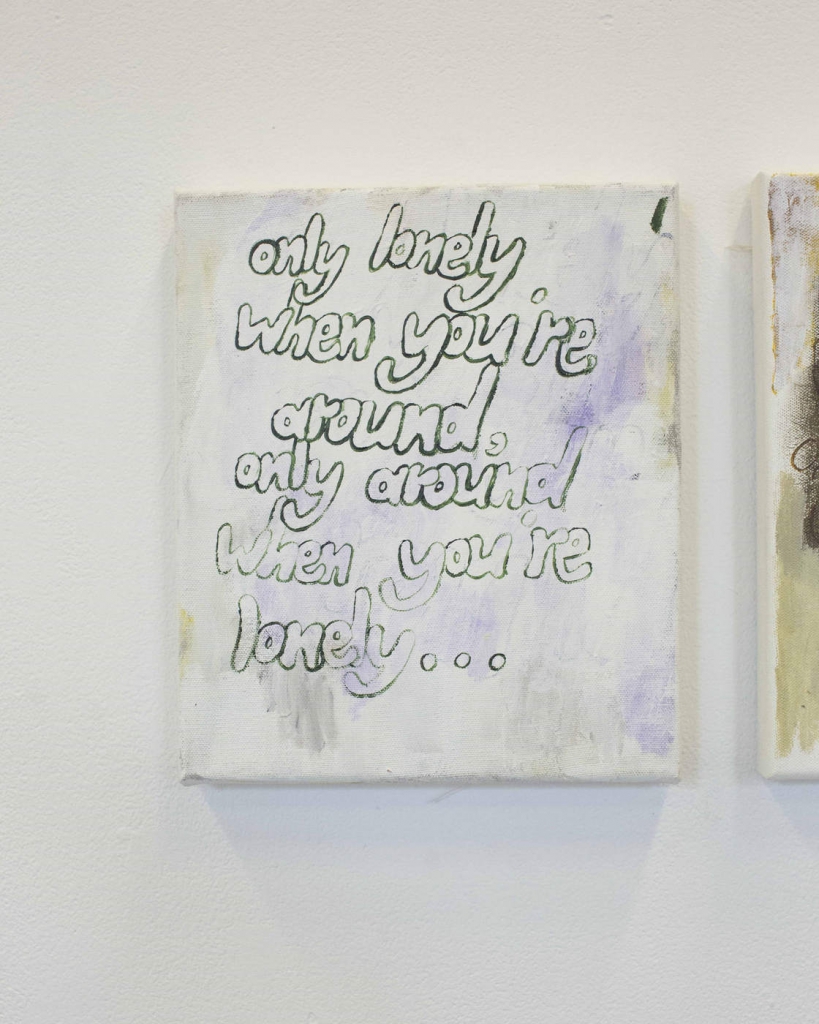 only lonely
when you're
around,
only around
when you're
lonely...